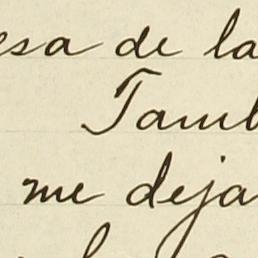 esa de la
Tamb
me deja